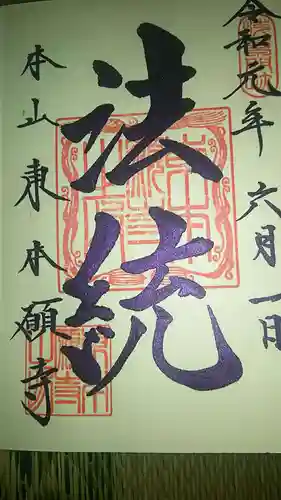 令和元年六月一日
法統
本山東本願寺